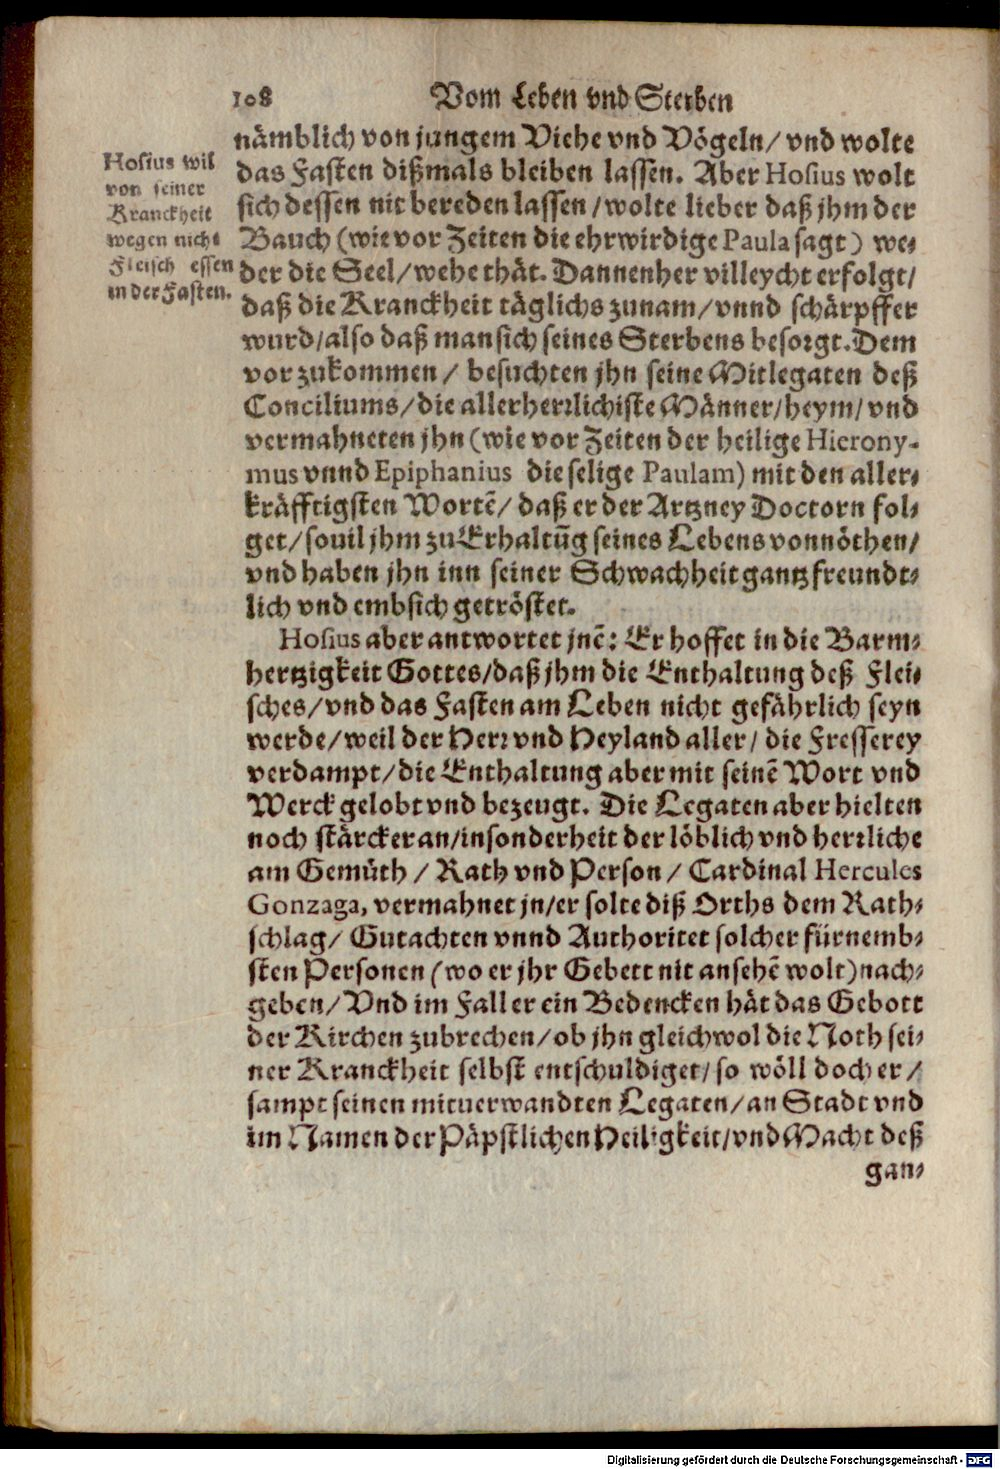 108 Vom Leben vnd Sterben
nämblich von jungem Viehe vnd Vögeln/ vnd wolte
das Fasten dißmals bleiben lassen. Aber Hosius wolt
sich dessen nit bereden lassen/wolte lieber daß jhm der
Bauch (wie vor Zeiten die ehrwirdige Paula sagt) we⸗
der die Seel/wehe thät. Dannenher villeycht erfolgt/
daß die Kranckheit täglichs zunam/vnnd schärpffer
wurd/also daß man sich seines Sterbens besorgt. Dem
vorzukommen/ besuchten jhn seine Mitlegaten deß
Conciliums/die allerherrlichiste Männer/heym/ vnd
vermahneten jhn (wie vor Zeiten der heilige Hierony-
mus vnnd Epiphanius die selige Paulam) mit den aller⸗
kräfftigsten Wortē/ daß er der Artzney Doctorn fol⸗
get/souil jhm zu Erhaltūg seines Lebens vonnöthen/
vnd haben jhn inn seiner Schwachheit gantz freundt⸗
lich vnd embsich getröstet.
Hosius aber antwortet jnē: Er hoffet in die Barm⸗
hertzigkeit Gottes/daß jhm die Enthaltung deß Flei⸗
sches/vnd das Fasten am Leben nicht gefährlich seyn
werde/weil der Herr vnd Heyland aller/ die Fresserey
verdampt/die Enthaltung aber mit seinē Wort vnd
Werck gelobt vnd bezeugt. Die Legaten aber hielten
noch stärcker an/insonderheit der löblich vnd herrliche
am Gemüth/ Rath vnd Person/ Cardinal Hercules
Gonzaga, vermahnet jn/er solte diß Orths dem Rath⸗
schlag/ Gutachten vnnd Authoritet solcher fürnemb⸗
sten Personen (wo er jhr Gebett nit ansehē wolt) nach⸗
geben/ Vnd im Fall er ein Bedencken hät das Gebott
der Kirchen zubrechen/ob jhn gleichwol die Noth sei⸗
ner Kranckheit selbst entschuldiget/so wöll doch er/
sampt seinen mituerwandten Legaten/an Stadt vnd
im Namen der Päpstlichen Heiligkeit/vnd Macht deß
gan⸗
Hosius wil
von seiner
Kranckheit
wegen nicht
Fleisch essen
in der Fasten.
Digitalisierung gefördert durch die Deutsche Forschungsgemeinschaft - DFG